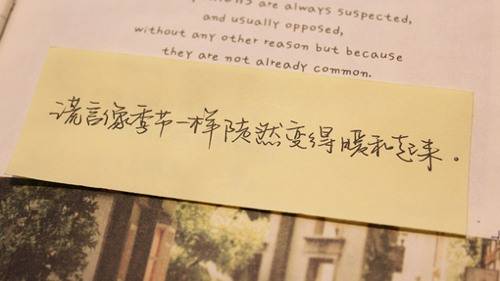 are always suspected,
and usually opposed,
without any other reason but because
they are not already common.
谎言像季节一样陡然变得暖和起来。